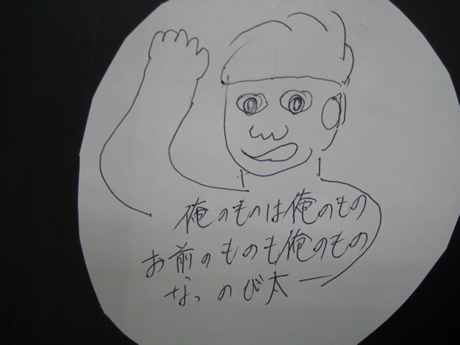 俺のものは俺のもの
お前のものも俺のもの
なっのび太ー